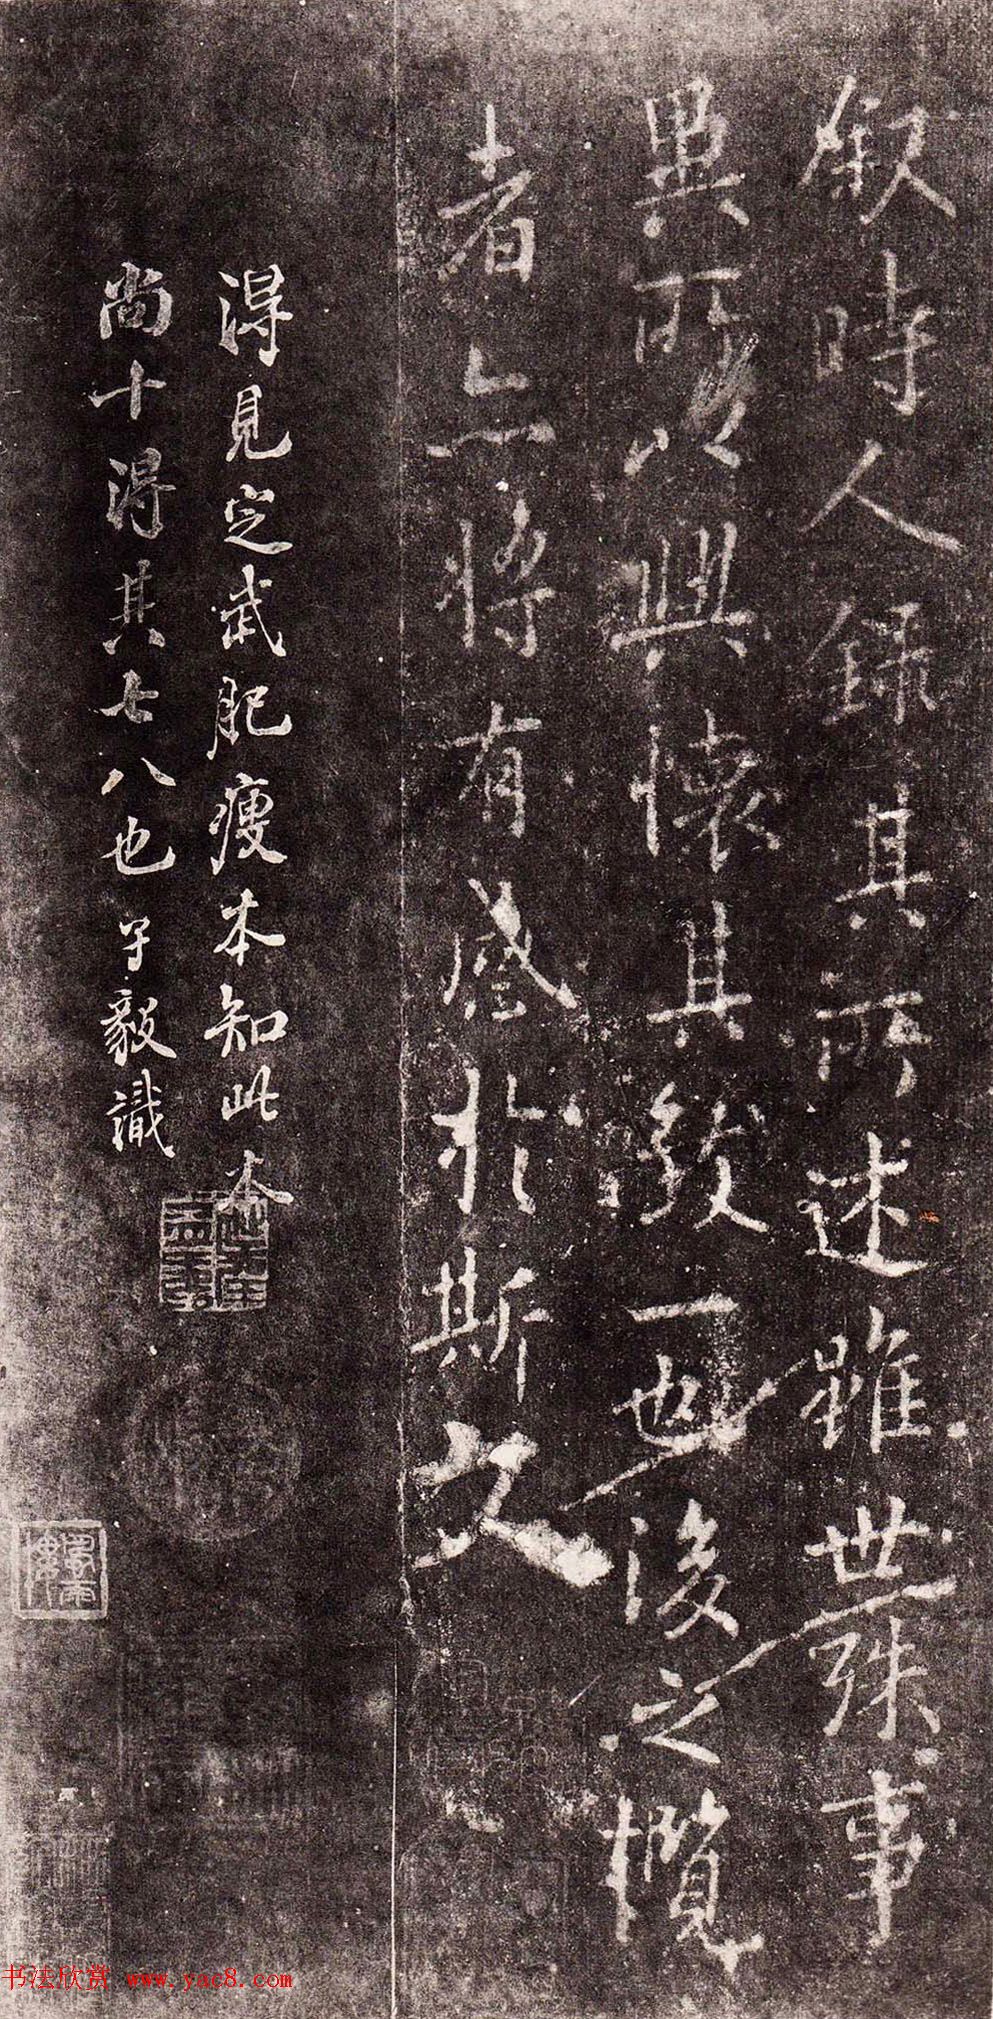 叙時人録其所述雖世殊事
異所以興懷其致一也後之攬
者亦將有感於斯文
得見定武肥瘦本知此本
尚十得其七八也子毅識
书法欣赏 www.yac8.com